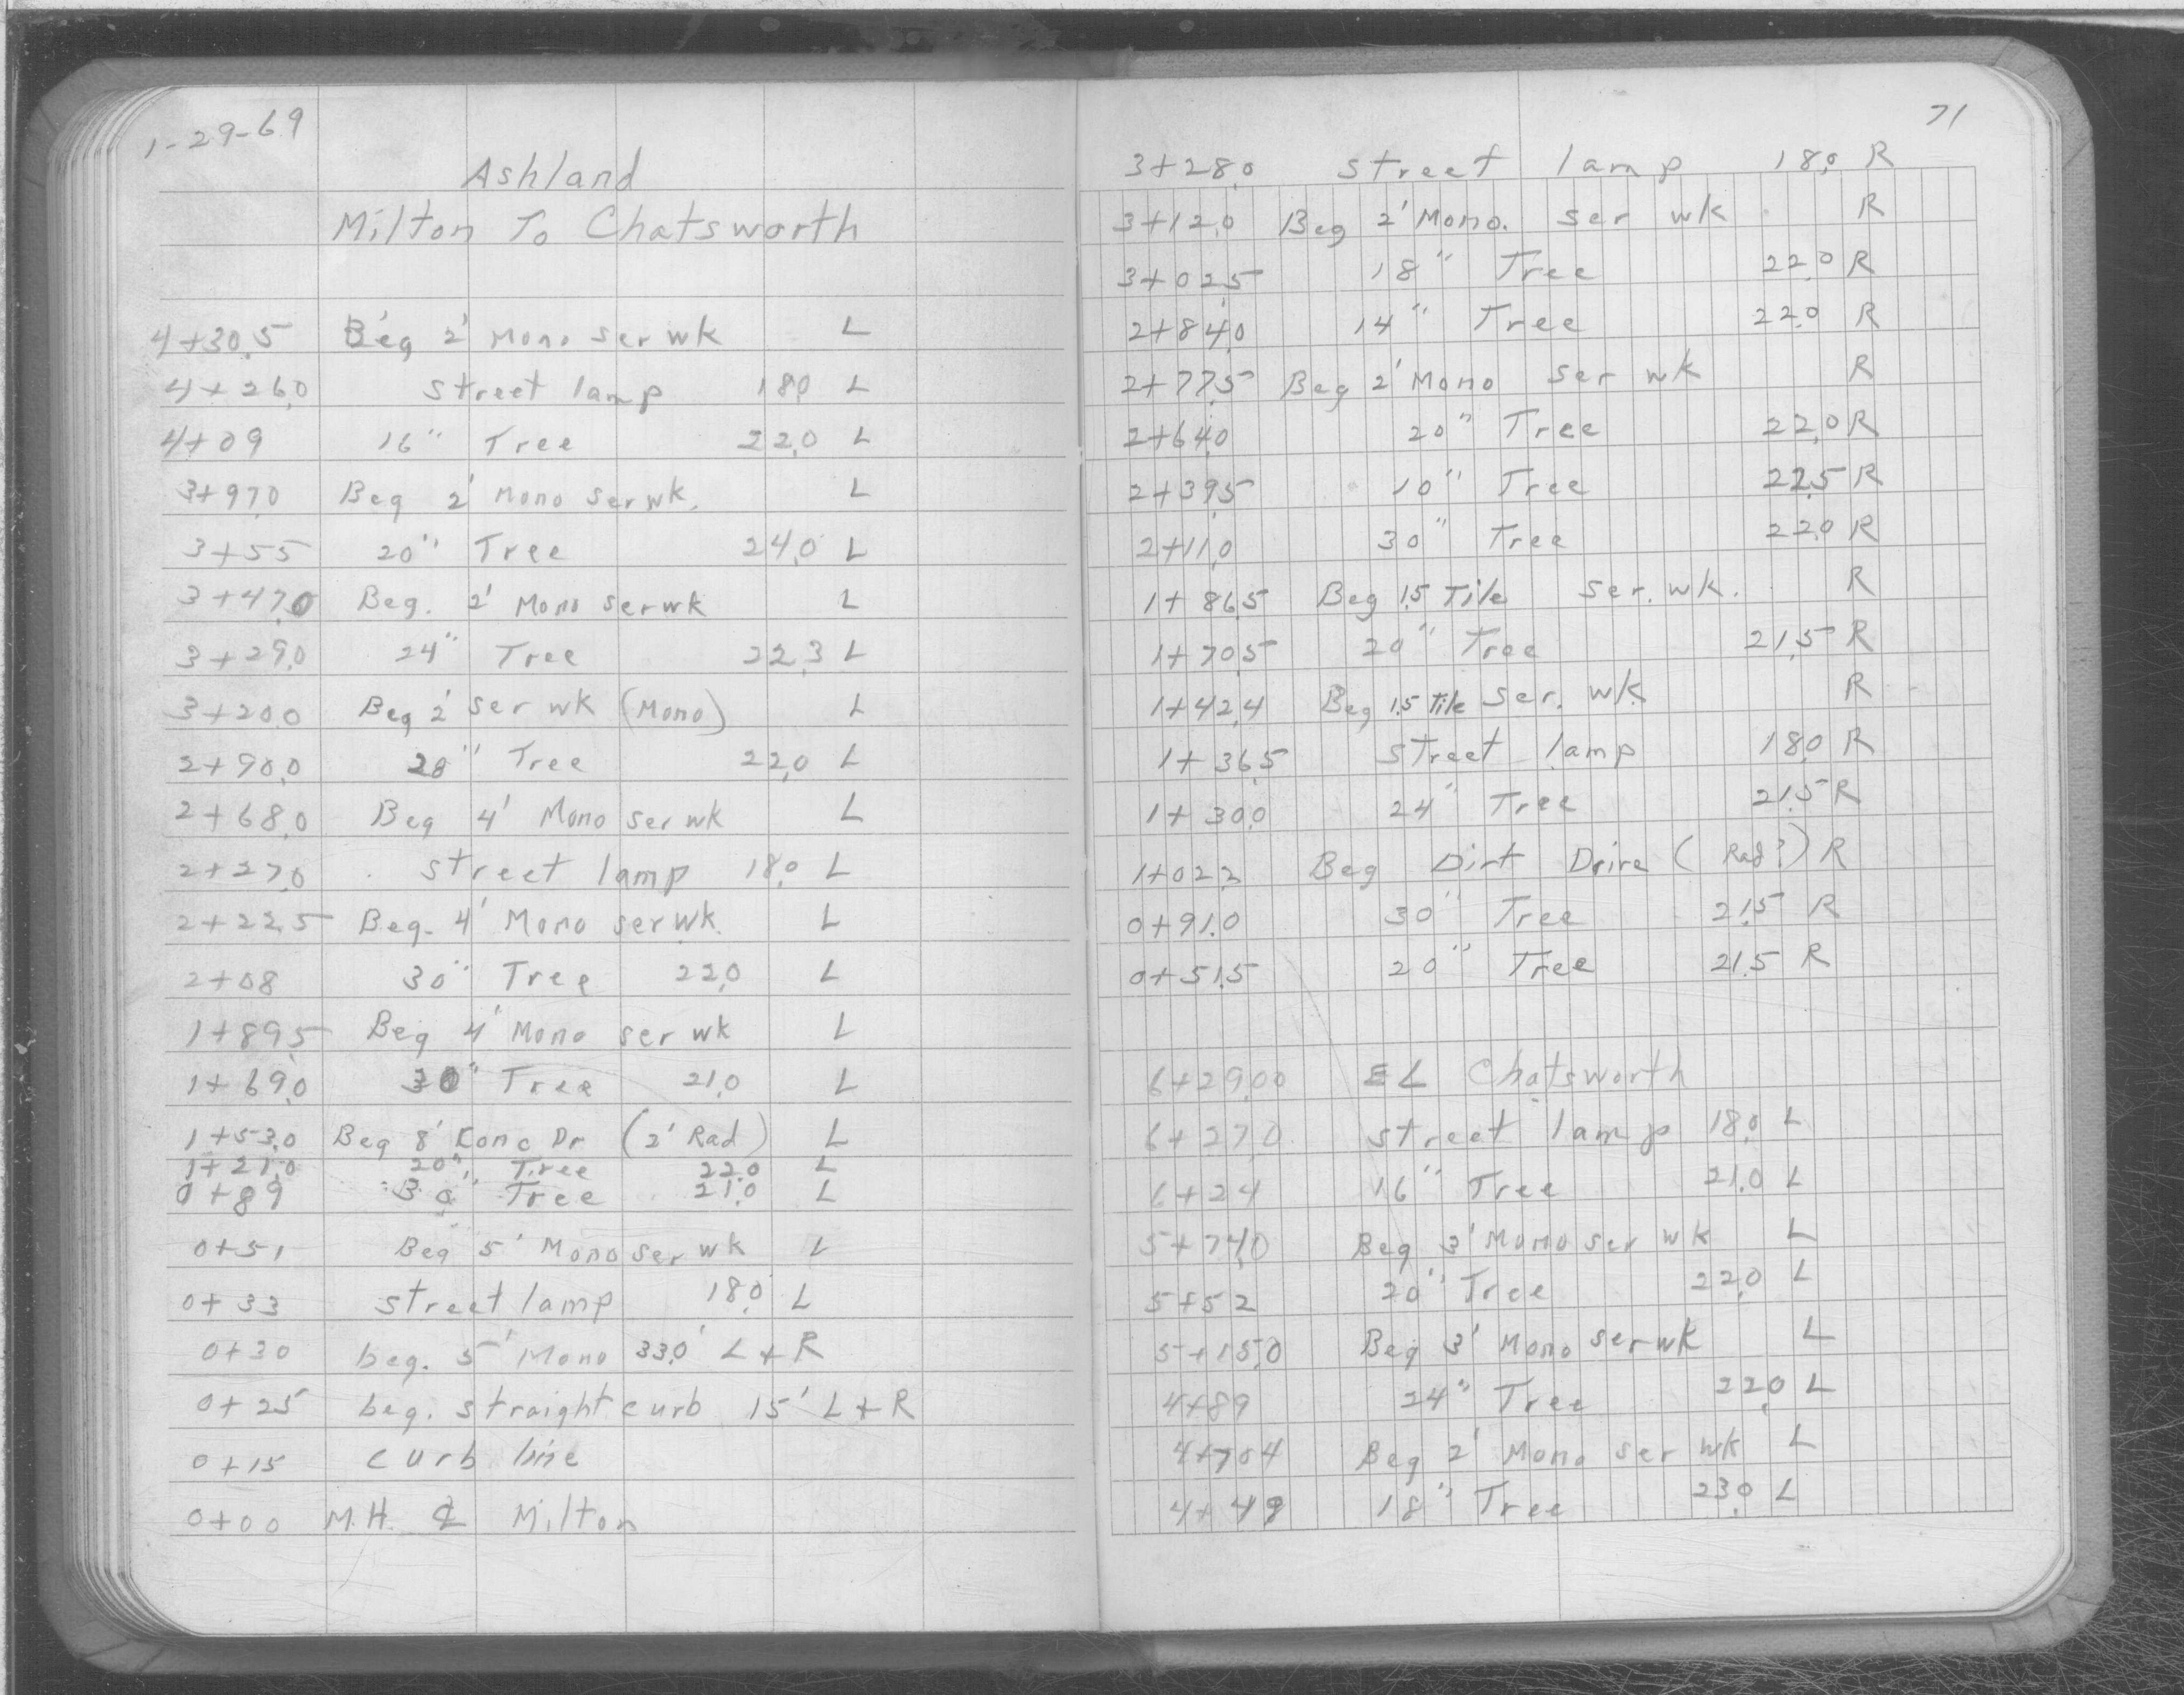 1-29-69
Ashland
Milton To Chatsworth
4+30.5 Beg 2' Mono ser wk L
4+26.0 street lamp 18.0 L
4+09 16" Tree 22.0 L
3+97.0 Beg 2' Mono ser wk. L
3+55 20" Tree 24.0 L
3+47.0 Beg. 2' Mono ser wk L
3+29.0 24" Tree 22.3 L
3+20.0 Beg 2' ser wk (Mono) L
2+90.0 20" Tree 22.0 L
2+68.0 Beg 4' Mono ser wk L
2+27.0 street lamp 18.0 L
2+22.5 Beg. 4' Mono ser wk. L
2+08 30" Tree 22.0 L
1+89.5 Beg 4' Mono ser wk L
1+69.0 30" Tree 21.0 L
1+53.0 Beg 8' Conc Dr (2' Rad) L
1+21.0 20" Tree 22.0 L
0+89 30" Tree 21.0 L
0+51 Beg 5' Mono ser wk L
0+33 street lamp 18.0 L
0+30 beg. 5' Mono 33.0' L+R
0+25 beg. straight curb 15' L+R
0+15 curb line
0+00 M.H. ℄ Milton
71
3+28.0 street lamp 18.0 R
3+12.0 Beg 2' Mono. ser wk R
3+02.5 18" Tree 22.0 R
2+84.0 14" Tree 22.0 R
2+77.5 Beg 2' Mono ser wk R
2+64.0 20" Tree 22.0 R
2+39.5 10" Tree 22.5 R
2+11.0 30" Tree 22.0 R
1+86.5 Beg 1.5 Tile ser. wk. R
1+70.5 20" Tree 21.5 R
1+42.4 Beg 1.5 Tile ser. wk. R
1+36.5 street lamp 18.0 R
1+30.0 24" Tree 21.5 R
1+02.2 Beg Dirt Drive (Rad?) R
0+91.0 30" Tree 21.5 R
0+51.5 20" Tree 21.5 R
6+29.00 EL Chatsworth
6+27.0 street lamp 18.0 L
6+24 16" Tree 21.0 L
5+74.0 Beg 3' Mono ser wk L
5+52 20" Tree 22.0 L
5+15.0 Beg 3' Mono ser wk L
4+89 24" Tree 22.0 L
4+70.4 Beg 2' Mono ser wk L
4+49 18" Tree 23.0 L